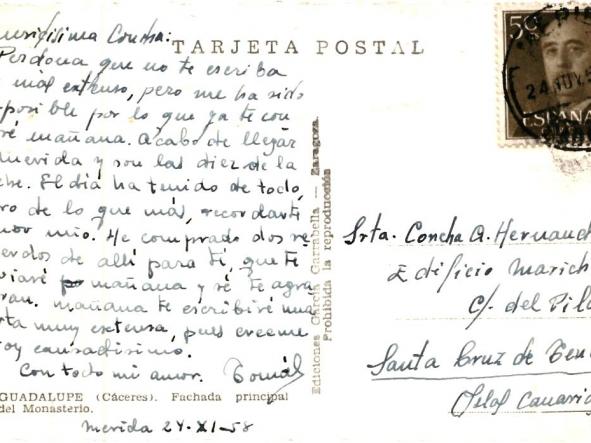 TARJETA POSTAL
urisísima Concha:
Perdona que no te escriba
mal extenso, pero me ha sido
posible por lo que ya te con
ré mañana. Acabo de llegar
querida y son las diez de la
che. El día ha tenido de todo,
ro de lo que más, recordarte
mor mío. He comprado dos re
uerdos de allí para ti, que te
viaré mañana y sé te agra
ran. mañana te escribiré una
rta muy extensa, pues creeme
oy cansadísimo.
Con todo mi amor. Tomás
GUADALUPE (Cáceres). Fachada principal
del Monasterio.
Merida 24-XI-58
Ediciones García Garrabella — Zaragoza.
Prohibida la reproducción
50
ESPAÑA
24 NOV.5
Srta. Concha A. Hernand
Edificio Marich
C/. del Pila
Santa Cruz de Tene
Islas Canaria